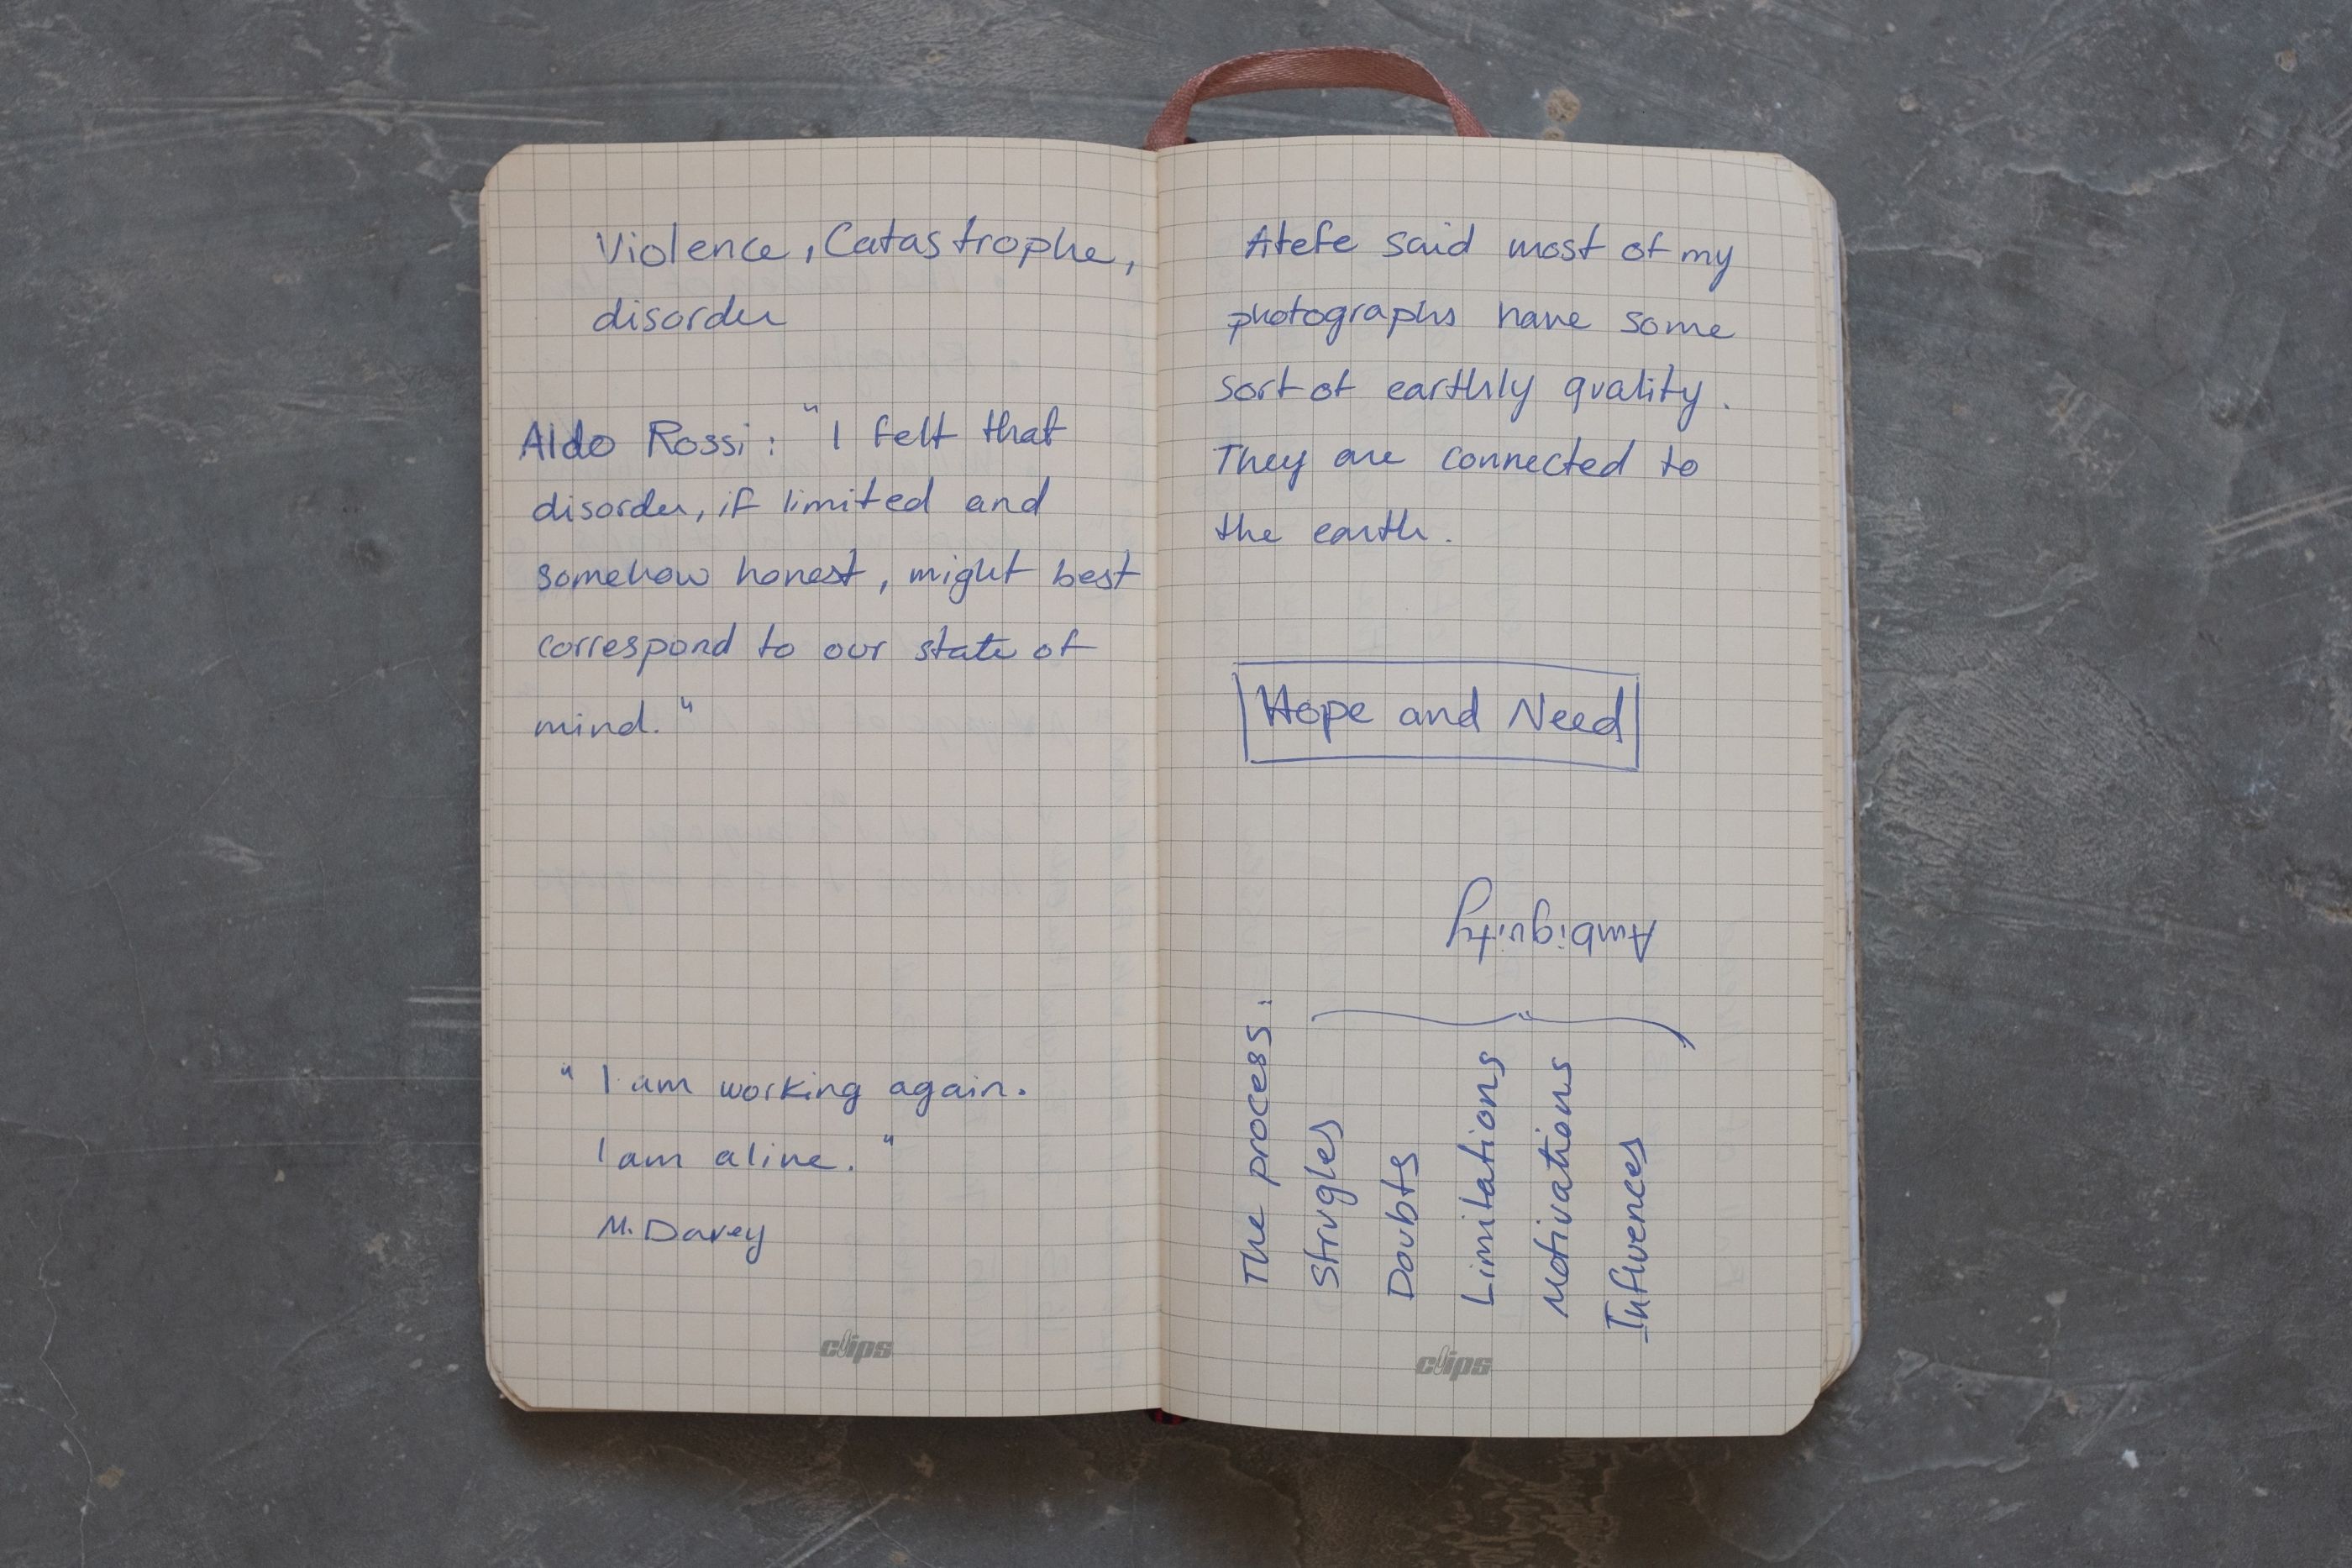 Violence, Catastrophe,
disorder
Aldo Rossi: "I felt that
disorder, if limited and
somehow honest, might best
correspond to our state of
mind."
"I am working again.
I am alive."
M. Davey
clips
Atefe said most of my
photographs have some
sort of earthly quality.
They are connected to
the earth.
Hope and Need
Ambiguity
The process:
Strugles
Doubts
Limitations
Motivations
Influences
clips